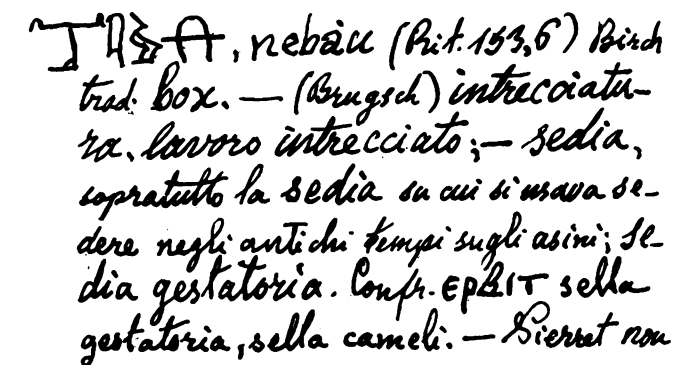 , nebàu (Rit. 153,6) Birch
trad. box. — (Brugsch) intrecciatu-
ra, lavoro intrecciato; — sedia,
sopratutto la sedia su cui si usava se-
dere negli antichi tempi sugli asini; se-
dia gestatoria. Confr. ⲉⲣⲃⲓⲧ sella
gestatoria, sella cameli. — Pierret non